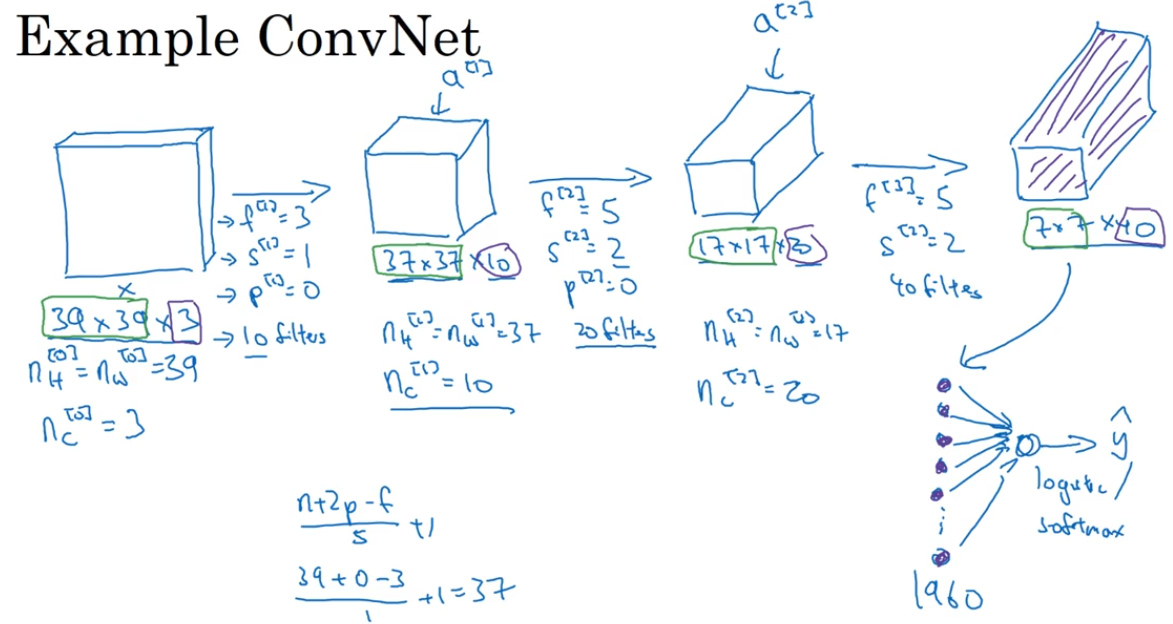 Example ConvNet
a^[1]
a^[2]
x
39 x 39 x 3
n_H^[0] = n_W^[0] = 39
n_C^[0] = 3
→ f^[1] = 3
→ s^[1] = 1
→ p^[1] = 0
→ 10 filters
37x37 x 10
n_H^[1] = n_W^[1] = 37
n_C^[1] = 10
f^[2] = 5
s^[2] = 2
p^[2] = 0
20 filters
17x17 x 20
n_H^[2] = n_W^[2] = 17
n_C^[2] = 20
f^[3] = 5
s^[2] = 2
40 filters
7x7 x 40
ŷ
logistic /
softmax
1960
(n+2p-f)/s + 1
(39+0-3)/1 + 1 = 37